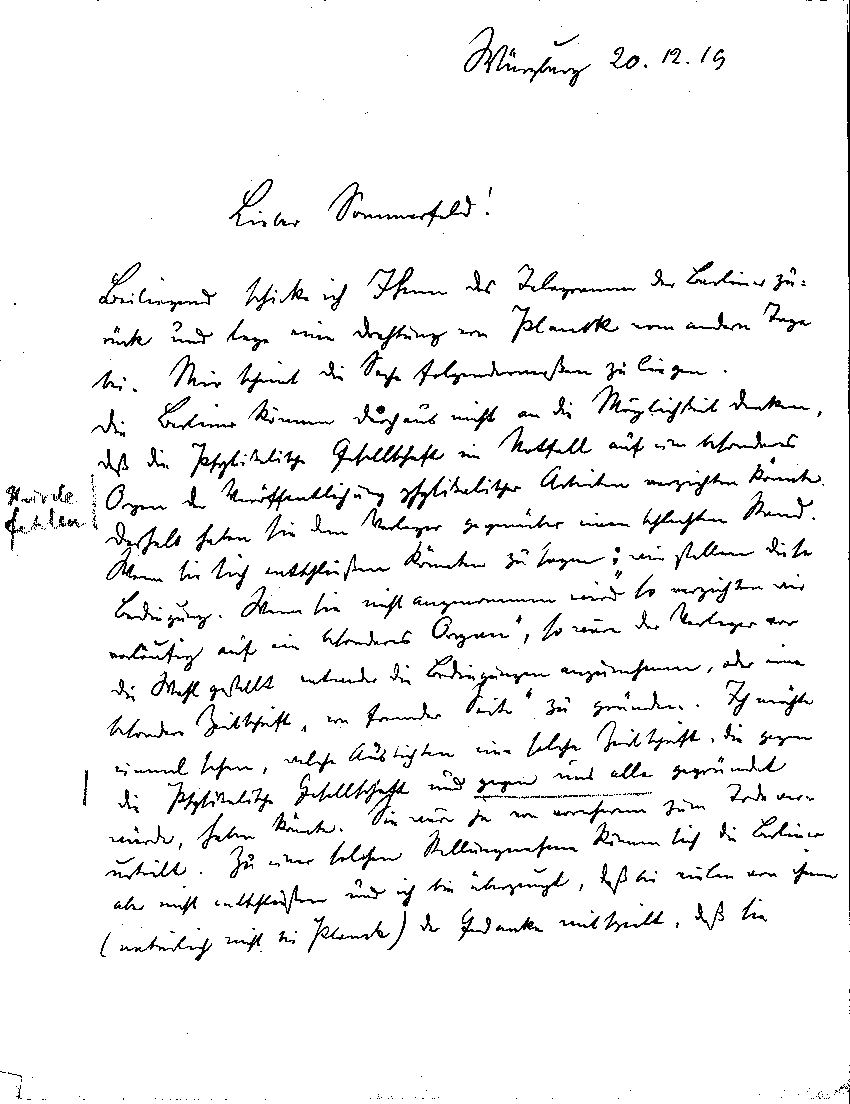 Würzburg 20.12.19
Lieber Sommerfeld!
Beiliegend schicke ich Ihnen das Telegramm der Berliner zu-
rück und lege eine Drahtung von Planck vom andern Tage
bei. Mir scheint die Sache folgendermaßen zu liegen.
Die Berliner können durchaus nicht an die Möglichkeit denken,
daß die Physikalische Gesellschaft im Notfall auf ein besonderes
Organ der Veröffentlichung physikalischer Arbeiten verzichten könnte.
Würde
fehlen
Deshalb haben sie dem Verleger gegenüber einen schlechten Stand.
Wenn sie sich entschließen könnten zu sagen: wir stellen diese
Bedingung. Wenn sie nicht angenommen wird" so verzichten wir
vorläufig auf ein besonderes Organ", so wäre der Verleger vor
die Wahl gestellt entweder die Bedingungen anzunehmen, oder eine
besondere Zeitschrift „von fremder Seite" zu gründen. Ich möchte
einmal sehen, welche Aussichten eine solche Zeitschrift, die gegen
die Physikalische Gesellschaft und gegen uns alle gegründet
würde, haben könnte. Sie wäre ja von vornherein zum Tode ver-
urteilt. Zu einer solchen Stellungnahme können sich die Berliner
aber nicht entschließen und ich bin überzeugt, daß bei vielen von ihnen
(natürlich nicht bei Planck) der Gedanke mitspielt, daß sie